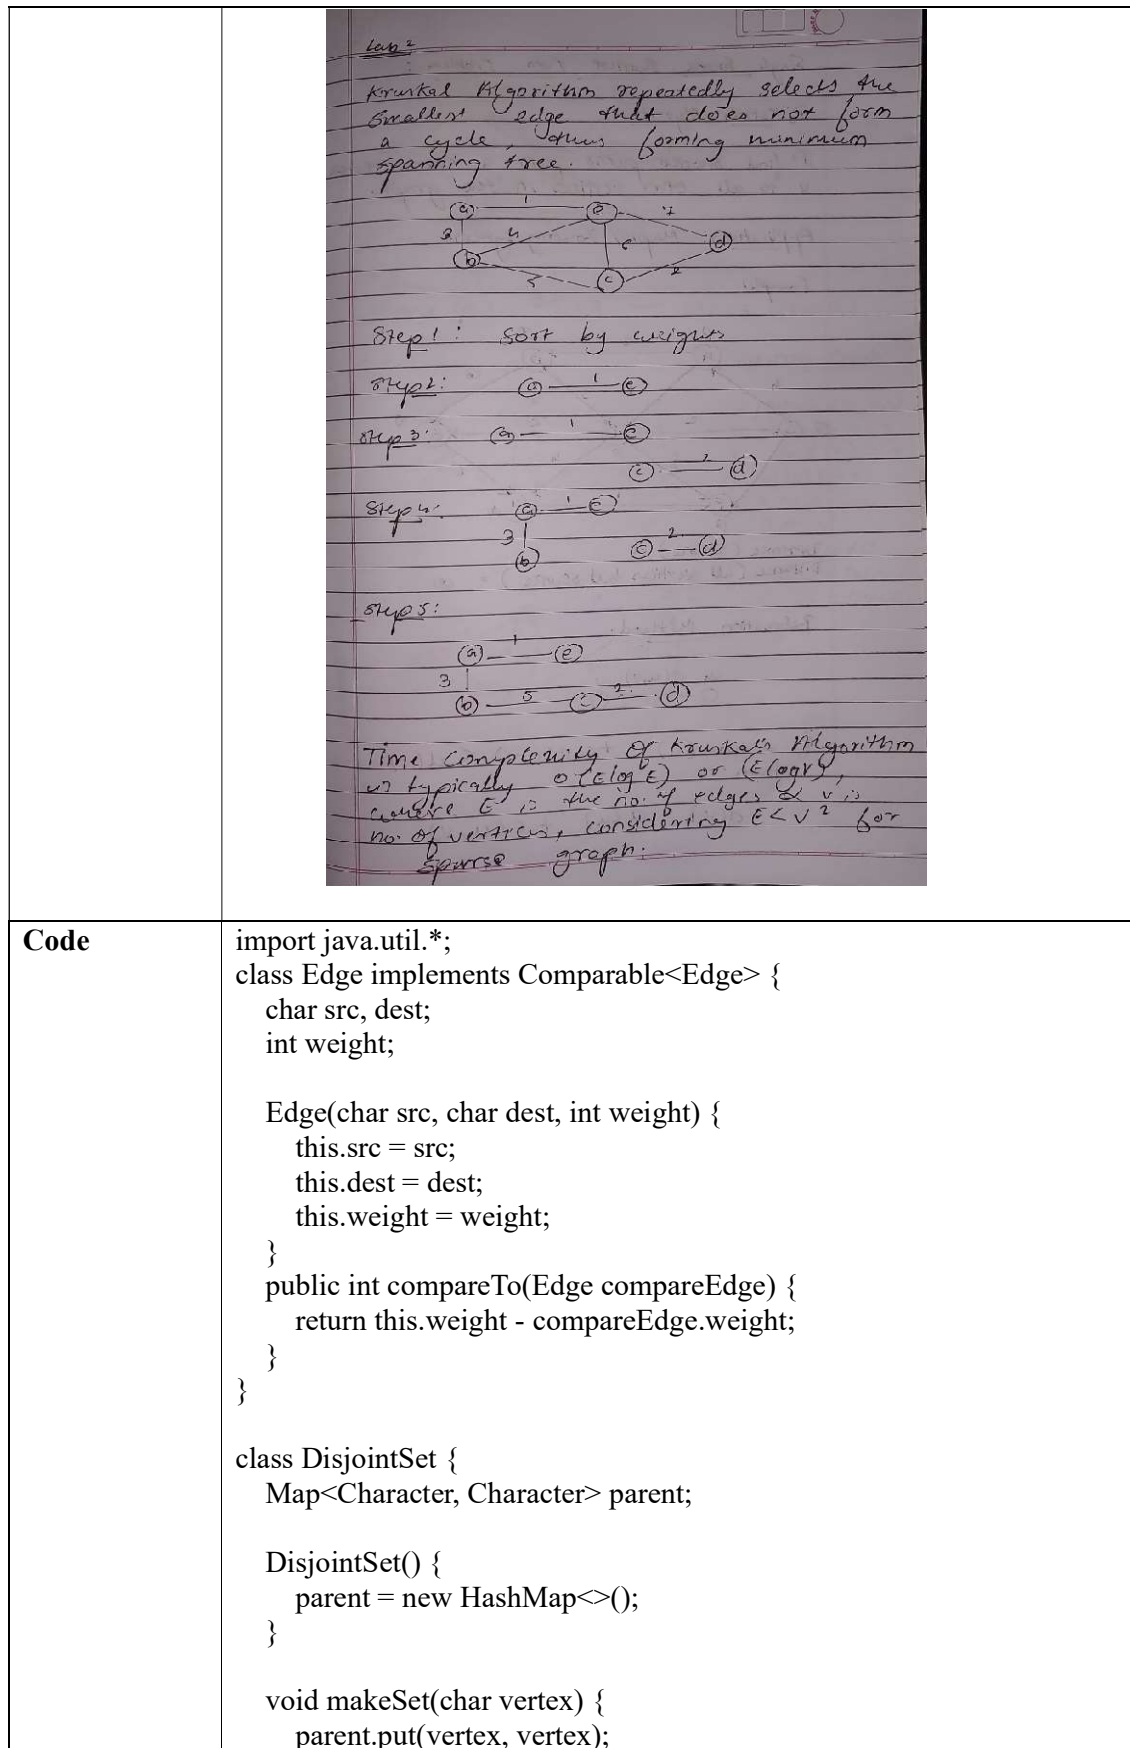 Lab 2
Kruskal Algorithm repeatedly selects the
smallest edge that does not form
a cycle, thus forming minimum
spanning tree.
a 1 e 7
4 6 d
b
5 c 2
Step 1: Sort by weights
Step 2: a 1 e
Step 3: a 1 e
c 2 d
Step 4: a 1 e
3 c 2 d
b
Step 5:
a 1 e
3
b 5 c 2 d
Time Complexity of Kruskal's Algorithm
is typically O(E log E) or (E log V),
where E is the no. of edges & V is
no. of vertices, considering E < V 2 for
sparse graph.
Code
import java.util.*;
class Edge implements Comparable<Edge> {
char src, dest;
int weight;
Edge(char src, char dest, int weight) {
this.src = src;
this.dest = dest;
this.weight = weight;
}
public int compareTo(Edge compareEdge) {
return this.weight - compareEdge.weight;
}
}
class DisjointSet {
Map<Character, Character> parent;
DisjointSet() {
parent = new HashMap<>();
}
void makeSet(char vertex) {
parent.put(vertex, vertex);